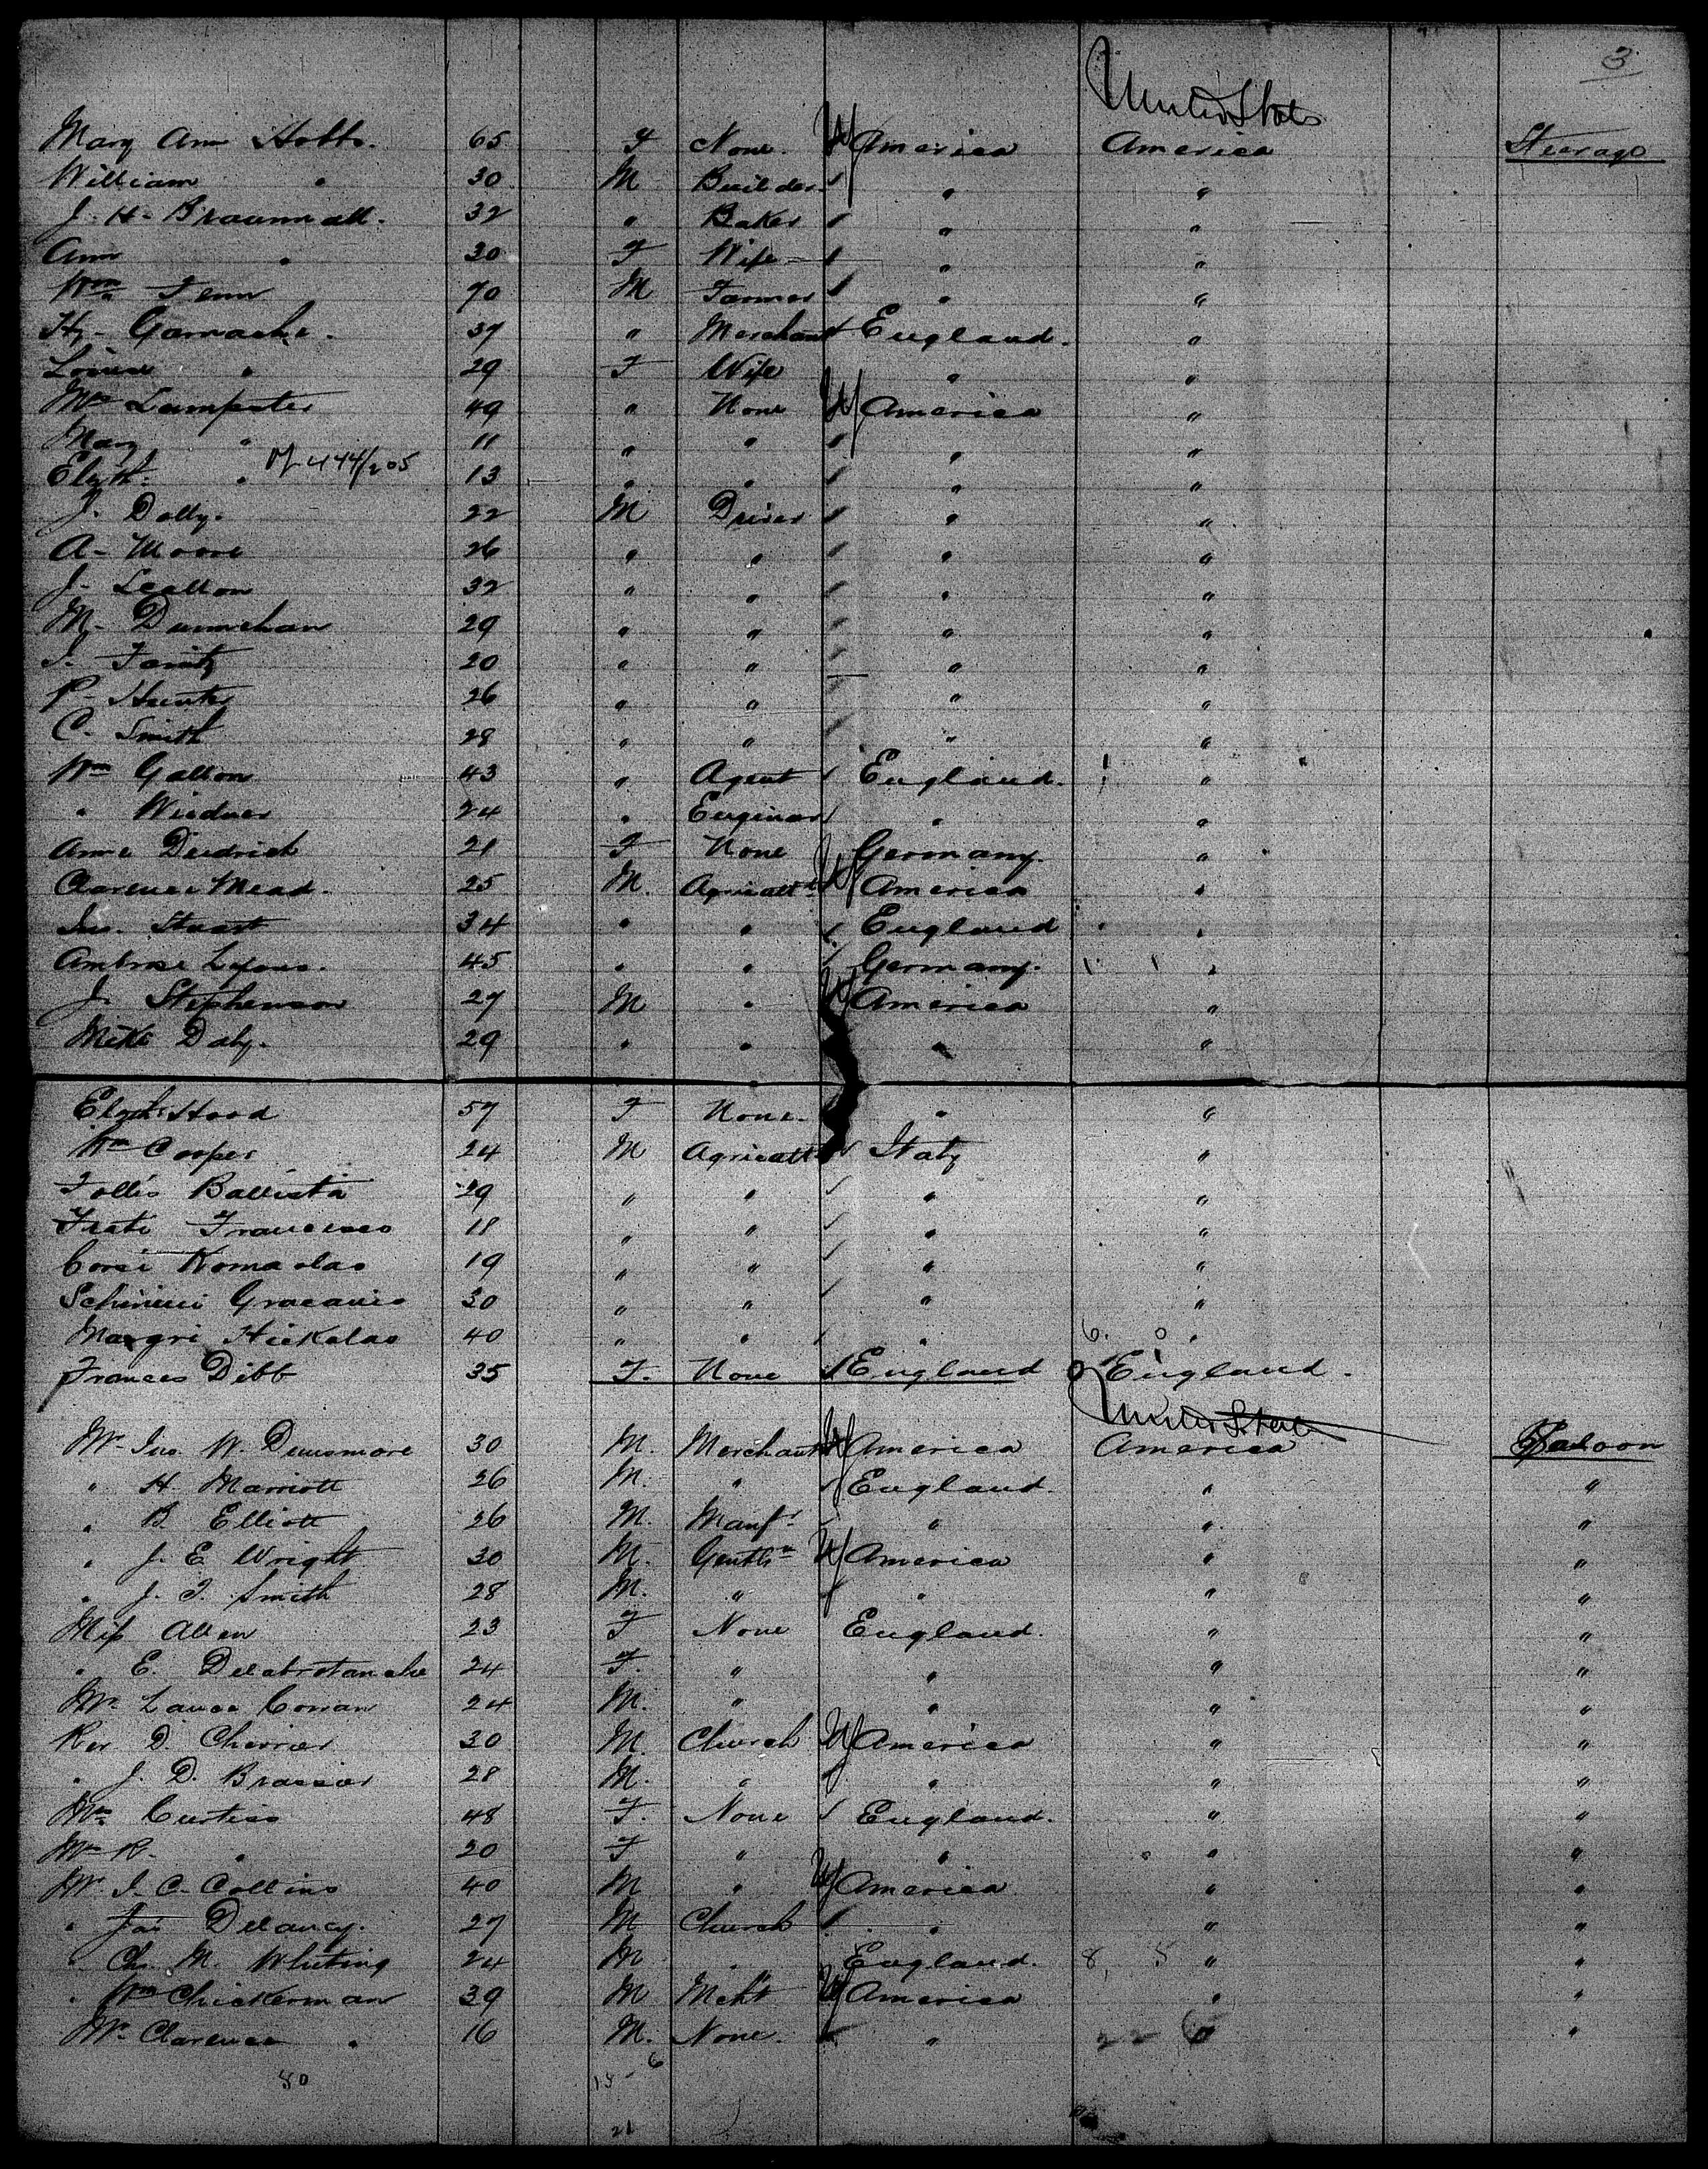 3
United States
Mary Ann Hobbs. 65 F None. America America Steerage
William " 30 M Builder " "
J. H. Braumwall. 32 " Baker " "
Ann " 30 F Wife " "
Wm Fenn 70 M Farmer " "
Hy. Gamache. 37 " Merchant England. "
Louisa " 29 F Wife " "
Mrs Lampster 49 " None America "
Mary " 11 " " " "
Elizth. " 13 " " " "
J. Dolly. 22 M Driver " "
A. Moore 26 " " " "
J. 32 " " " "
M. 29 " " " "
20 " " " "
P. Hunter 26 " " " "
C. Smith 28 " " " "
Wm Galton 43 " Agent England. "
" 24 " Engineer " "
Anna Diedrich 21 F None Germany. "
Clarence Mead. 25 M. Agricult America "
Jno. Stuart 34 " " England "
Ambrose Lyons. 45 " " Germany. "
J. Stephenson 27 M " America "
Mike Daly. 29 " " " "
Elizth Hood 57 F None. " "
Wm Cooper 24 M Agricult Italy "
Follis Battista 29 " " " "
Frati Francesco 18 " " " "
Corsi 19 " " " "
30 " " " "
Margri 40 " " " "
Frances Dibb 35 F. None England England.
United States
Mr Jno. W. Dunsmore 30 M. Merchant America America Saloon
" H. Marriott 26 M. " England. " "
" B. Elliott 26 M. Manfr " " "
" J. E. Wright 30 M. Gentln America " "
" J. T. Smith 28 M. " " " "
Miss Allen 23 F None England. " "
" E. 24 F. " " " "
Mr Lance Cowan 24 M. " " " "
Rev D. Cherrier 30 M. Church America " "
" J. D. Brassier 28 M. " " " "
Mrs Curtiss 48 F. None England. " "
R. " 20 F " " " "
Mr. J. C. Collins 40 M " America " "
" Jas Delancy. 27 M Church " " "
" Ch. M. Whiting 24 M " England. " "
" Wm Chickerman 39 M Mcht America " "
Mr Clarence " 16 M. None. " " "
50 15 6
21